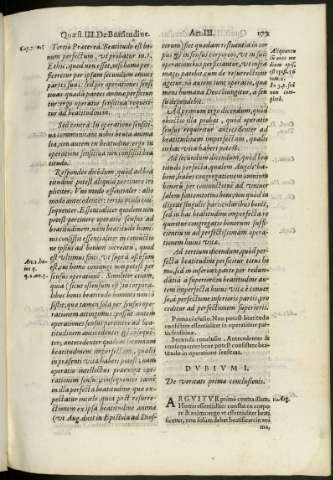 Quæst. III. De Beatitudine. Art. III. 173
Tertiò Præterea. Beatitudo est bo-
num perfectum, vt probatur in 1.
Ethic. quod non esset, nisi homo per-
ficeretur per ipsum secundum omnes
partes suas: sed per operationes sensi-
tiuas quædã partes animæ perficiun-
tur ergo operatio sensitiua requiri-
tur ad beatitudinem.
Sed contra. In operatione sensitiua
communicant nobiscum bruta anima
lia, non autem in beatitudine, ergo in
operatione sensitiua non consistit bea
titudo.
Respondeo dicēdum, quòd ad bea
titudinē potest aliquid pertinere tri-
pliciter. Vno modo essentialiter: alio
modo antecedenter: tertio modo con-
sequenter. Essentialiter quidem non
potest pertinere operatio sensus ad
beatitudinem, nam beatitudo homi-
nis consistit essentialiter in coniunctio
ne ipsius ad bonum increatum, quod
est vltimus finis, vt suprà ostensum
est, cui homo coniungi non potest per
sensus operationē. Similiter etiam,
quia (sicut ostensum est) in corpora-
libus bonis beatitudo hominis non con-
sistit, quæ tamen sola per sensus ope-
rationem attingimus. Possunt autem
operationes sensus pertinere ad bea-
titudinem antecedenter & consequē-
ter: antecedenter quidem secundum
beatitudinem imperfectam, qualis
in præsenti vita haberi potest, nam
operatio intellectus præexigit opera-
tionem sensus: consequenter autem
in illa perfecta beatitudine quæ ex-
pectatur in cœlo: quia post resurre-
ctionem ex ipsa beatitudine animæ
(vt Aug. dicit in Epistola ad Dios-
corum) fiet quædam refluentia in cor-
pus & in sensus corporeos, vt in suis
operationibus perficiantur, vt infrà
magis patebit cum de resurrectione
agetur: non autem tunc operatio, qua
mens humana Deo coniungitur, à sen
su dependebit.
Ad primum ergo dicendum, quòd
obiectio illa probat, quòd operatio
sensus requiritur antecedenter ad
beatitudinem imperfectam, qualis
in hac vita haberi potest.
Ad secundum dicendum, quòd bea
titudo perfecta, qualem Angeli ha-
bent, habet congregationem omnium
bonorum per coniunctionē ad vniuer
salem fontem totius boni, non quòd in-
digeat singulis particularibus bonis,
sed in hac beatitudine imperfecta re
quiritur congregatio bonorum suffi-
cientium ad perfectissimam opera-
tionem huius vitæ.
Ad tertium dicendum, quòd per-
fecta beatitudine perficitur totus ho
mo, sed in inferiori parte per redun-
dātiam à superiori: in beatitudine au-
tem imperfecta huius vitæ è conuer-
so, à perfectione inferioris partis, pro
ceditur ad perfectionem superioris.
Prima cõclusio. Non potest beatitudo
consistere essentialiter in operatione par-
tis sensitiuæ.
Secunda conclusio. Antecedenter &
consequenter bene potest consistere bea-
titudo in operatione sensitiua.
DVBIVM I.
De veritate primæ conclusionis.
ARGVITVR primò contra illam.
Homo essentialiter constat ex corpo-
re & anima: ergo vt essentialiter beati
ficetur, non solum debet beatificari in